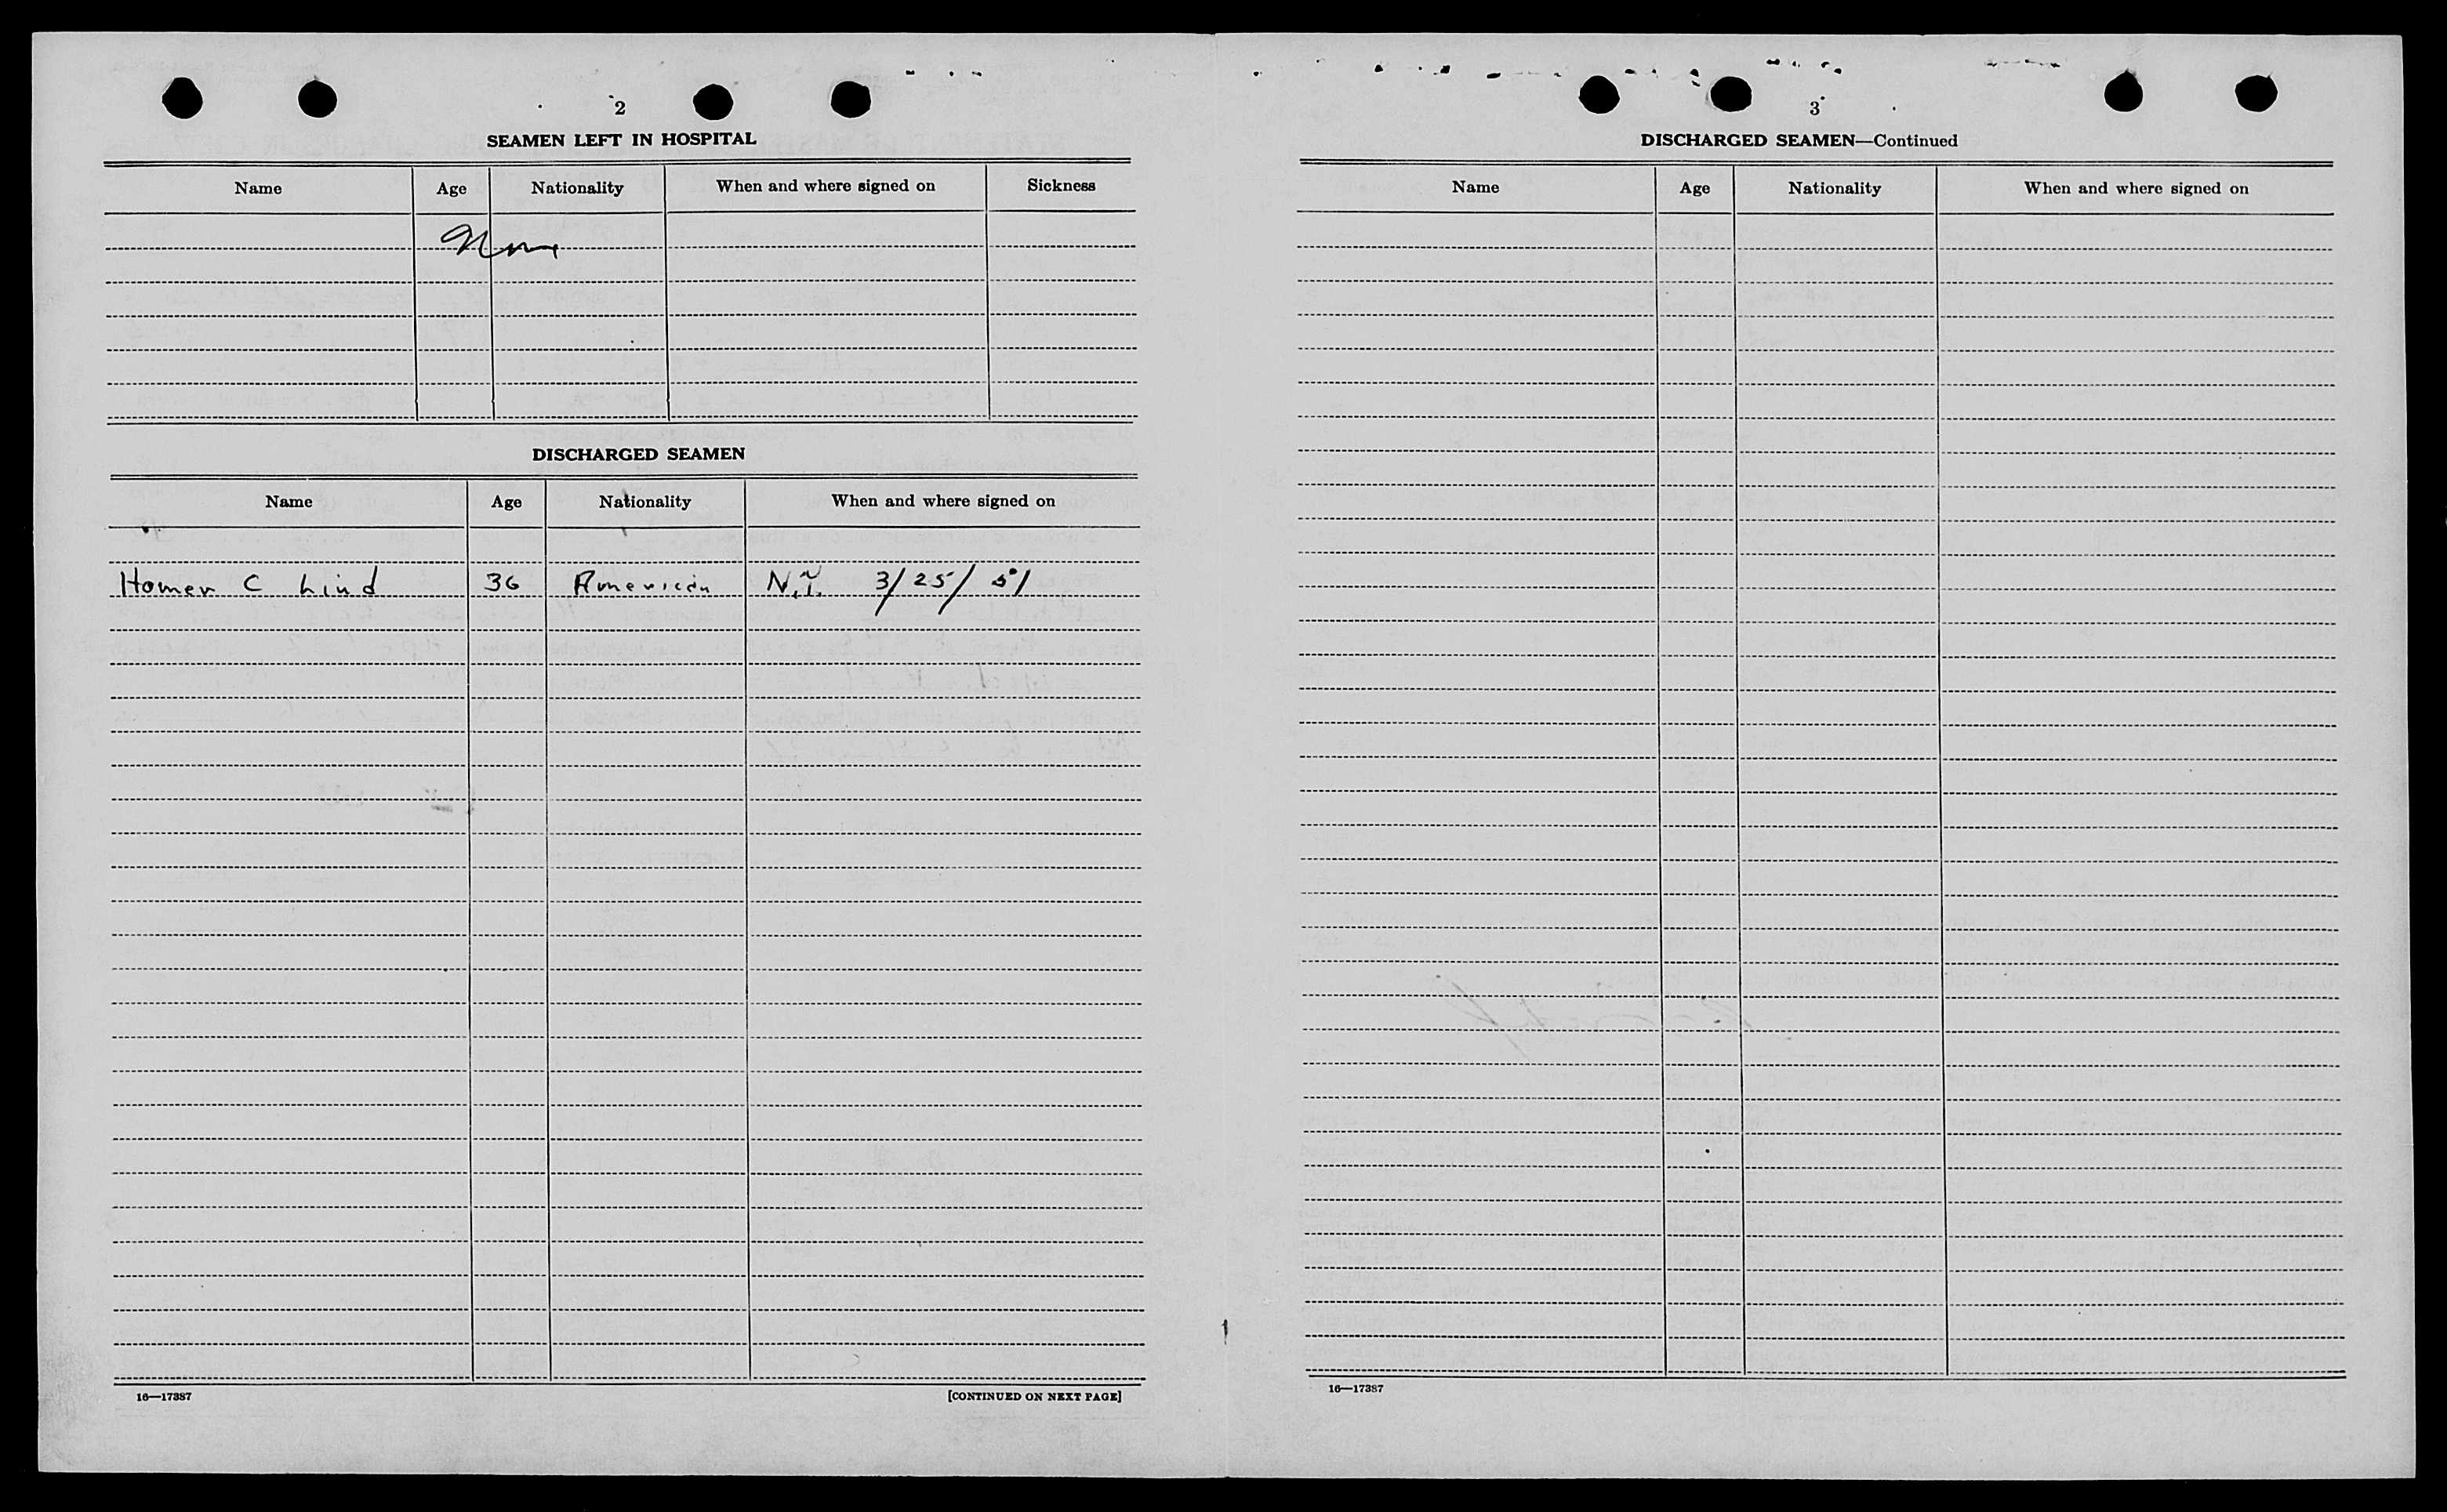 2
SEAMEN LEFT IN HOSPITAL
Name Age Nationality When and where signed on Sickness
None
DISCHARGED SEAMEN
Name Age Nationality When and where signed on
Homer C Lind 36 American N.Y. 3/25/51
16—17387 [CONTINUED ON NEXT PAGE]
3
DISCHARGED SEAMEN—Continued
Name Age Nationality When and where signed on
16—17387